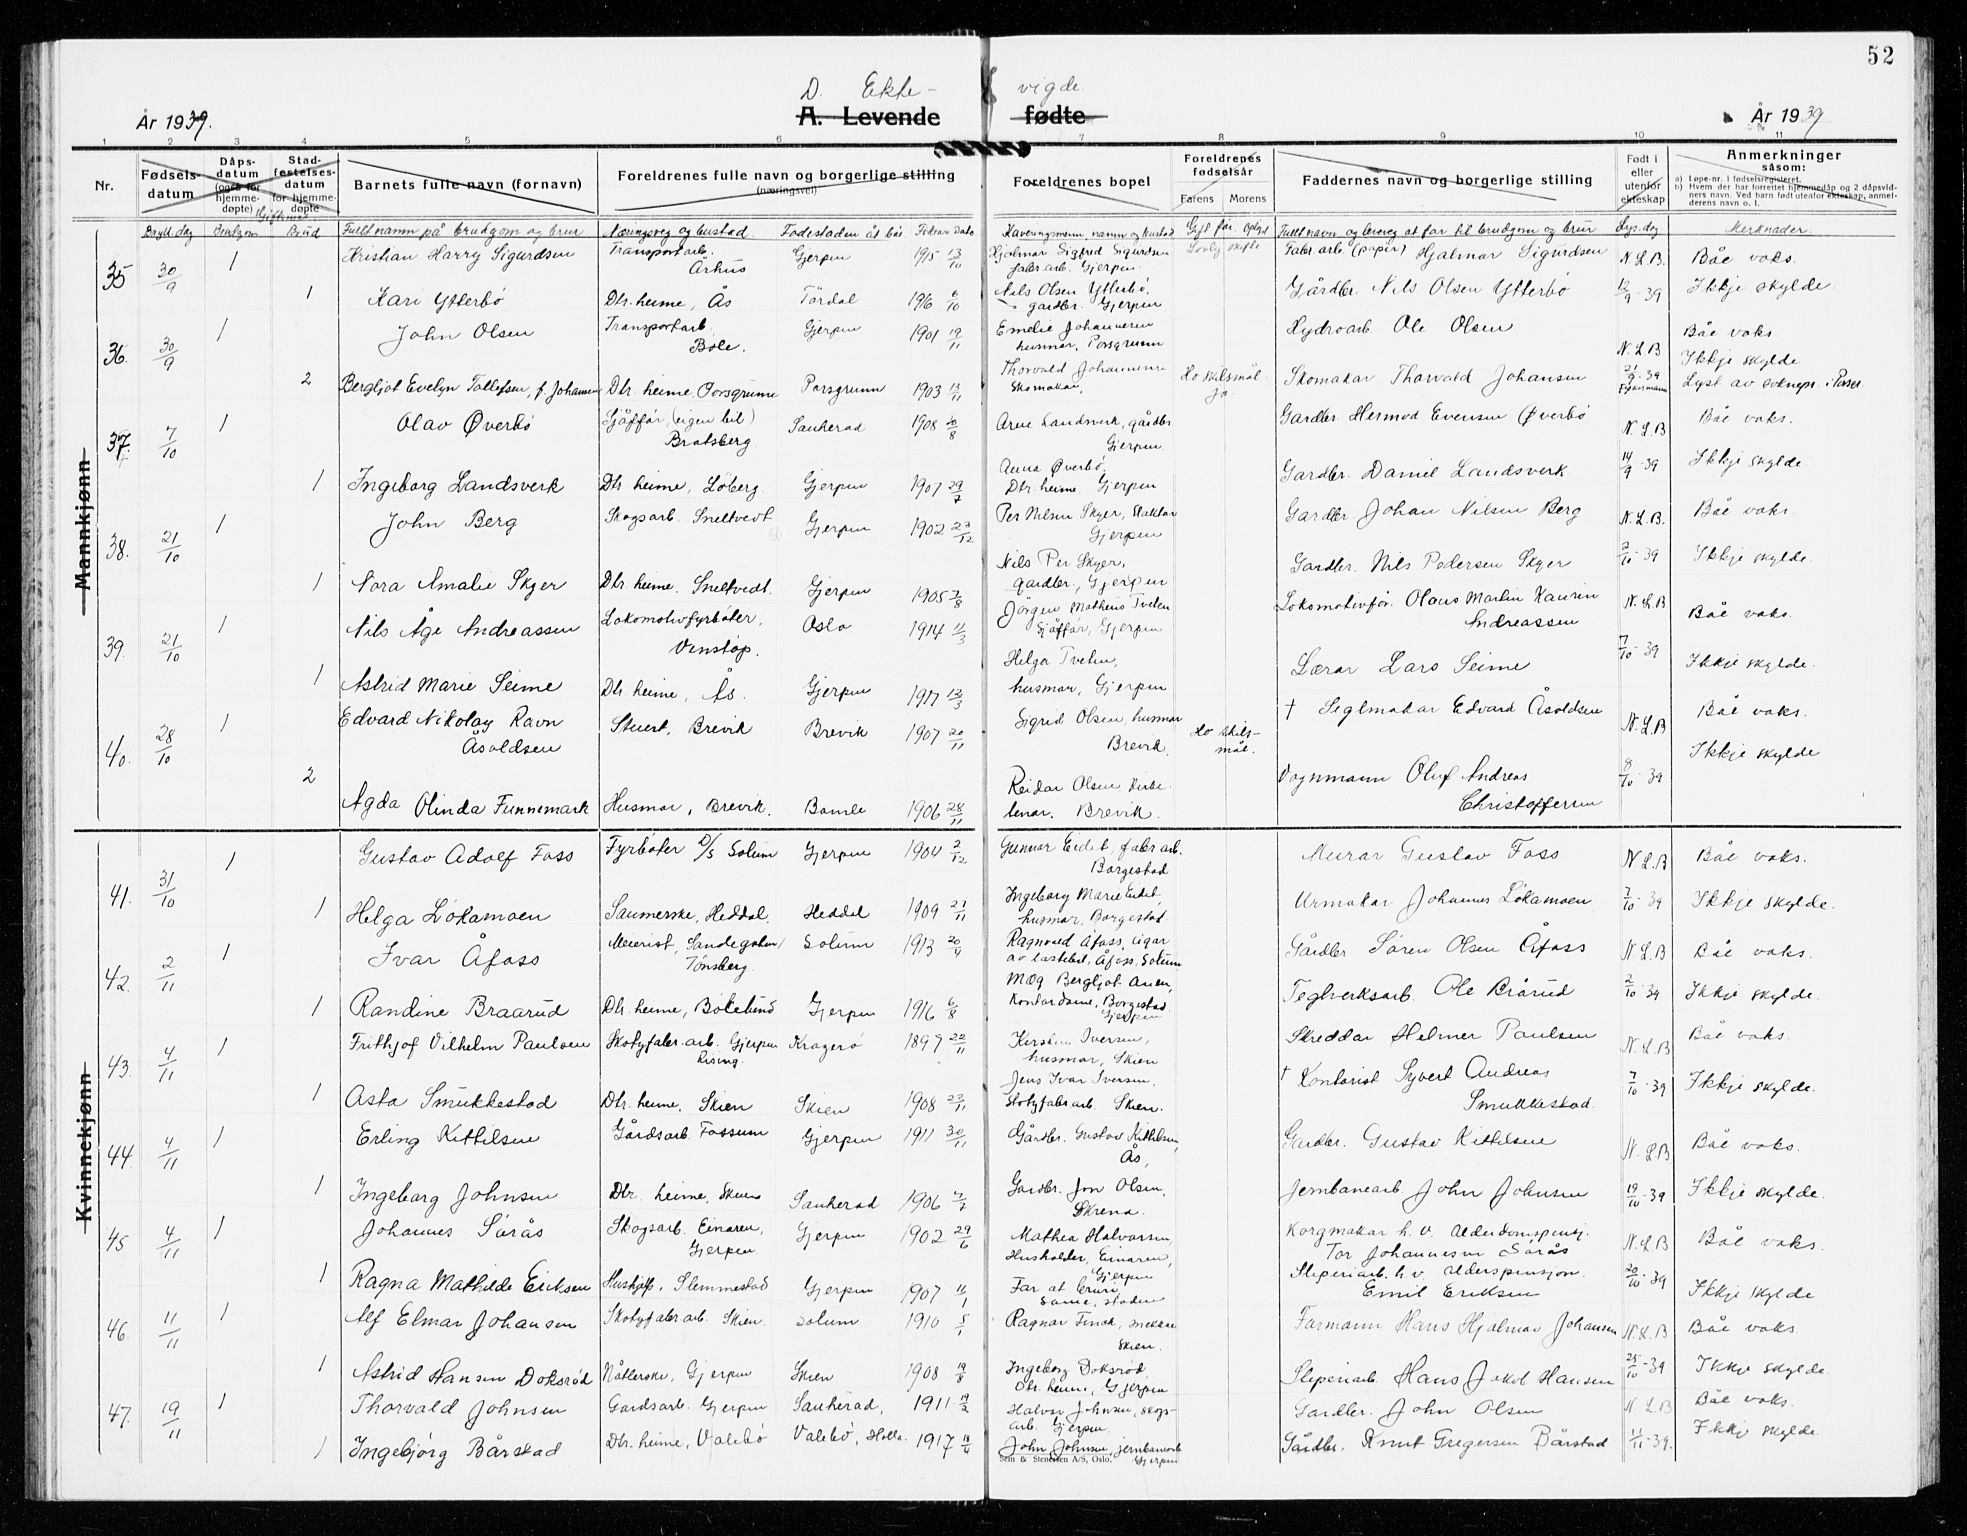 52
D. Ekte- vigde.
År 1939. A. Levende fødte År 1939
1 2 3 4 5 6 7 8 9 10 11
Nr. Fødsels-datum Dåps-datum (også for hjemme-døpte) Stad-festelses-datum for hjemme-døpte Barnets fulle navn (fornavn) Foreldrenes fulle navn og borgerlige stilling (næringsvei) Foreldrenes bopel Foreldrenes fødselsår Farens Morens Faddernes navn og borgerlige stilling Født i eller utenfor ekteskap Anmerkninger såsom:
a) Løpe-nr. i fødselsregisteret.
b) Hvem der har forrettet hjemmedåp og 2 dåpsvidners navn. Ved barn født utenfor ekteskap, anmelderens navn o. l.
Bryll.dag Brudgom Brud Fullt namn på brudgom og brur Næringsveg og bustad Fødestaden åt båe Fødeår Dato Kaveringsmenn, namn og bustad Gift før Fullt navn og livsveg åt far til brudgom og brur Lys.dag Merknader
Mannkjønn
35 30/9 1 Kristian Harry Sigurdsen Transportarb. Århus Gjerpen 1915 13/10 Hjalmar Sigfred Sigurdsen fabr.arb. Gjerpen Fabr.arb. (papir) Hjalmar Sigurdsen N.L.B. Båe voks.
1 Kari Ytterbø Dtr. heime, Ås Tördal 1916 6/10 Nils Olsen Ytterbø, gardbr. Gjerpen Gårdbr. Nils Olsen Ytterbø 12/9-39 Ikkje skylde.
36. 30/9 1 John Olsen Transportarb. Bole. Gjerpen 1901 19/11 Emelie Johannesen husmor, Porsgrunn Hydroarb Ole Olsen N.L.B Båe voks
2 Bergljot Evelyn Tollefsen, f. Johansen Dtr. heime Porsgrunn Porsgrunn 1903 13/11 Thorvald Johannesen Skomakar. Ho skilsmål ja. Skomakar Thorvald Johansen 21/9-39 Ikkje skylde Lyst av soknepr. i Porsgr.
37. 7/10 1 Olav Øverbø Sjåffør, (eigen bil) Bratsberg Sauherad 1908 20/8 Arne Landsverk, gårdbr Gjerpen. Gardbr. Hermod Evensen Øverbø N.L.B Båe voks.
1 Ingeborg Landsverk Dtr heime, Løberg. Gjerpen 1907 29/7 Anna Øverbø, Dtr. heime. Gjerpen Gardbr. Daniel Landsverk 14/9-39 Ikkje skylde.
38. 21/10 1 John Berg Skogsarb. Sneltvedt Gjerpen 1902 23/12 Per Nilsen Skyer, Gjerpen Gardbr Johan Nilsen Berg N.L.B. Båe voks.
1 Nora Amalie Skyer Dtr. heime. Sneltvedt. Gjerpen 1905 7/8 Nils Per Skyer, gardbr., Gjerpen Gardbr. Nils Pedersen Skyer 2/10-39 Ikkje skylde.
39. 21/10 1 Nils Åge Andreassen Lokomotivfyrbøter, Venstøp. Oslo 1914 11/3 Jörgen Matheus Tveten Sjåffør, Gjerpen Lokomotivfør. Olaus Martin Kaurin Andreassen N.L.B Båe voks.
1 Astrid Marie Seime Dtr. heime, Ås. Gjerpen 1917 13/3 Helga Tveten, husmor, Gjerpen Lærar Lars Seime 7/10-39 Ikkje skylde.
40. 28/10 1 Edvard Nikolay Ravn Åsoldsen Stuert, Brevik Brevik 1907 20/11 Sigrid Olsen, husmor Brevik. Ho skils-mål. † Seglmakar Edvard Åsoldsen N.L.B Båe voks.
2 Agda Olinda Funnemark Husmor, Brevik. Bamle 1906 28/11 Reidar Olsen Brevik. Vognmann Oluf Andreas Christoffersen 8/10-39 Ikkje skylde
Kvinnekjønn
41. 31/10 1 Gustav Adolf Foss Fyrbøter D/S Solum Gjerpen 1904 2/12 Gunnar Eidet, fabr.arb. Borgestad Murar Gustav Foss N.L.B Båe voks.
1 Helga Lökamoen Saumerske, Heddal. Heddal 1909 27/11 Ingeborg Marie Eidet, husmor, Borgestad Urmakar Johannes Lökamoen 7/10-39 Ikkje skylde.
42. 2/11 1 Ivar Åfoss Meierist, Sandegaten, Tønsberg. Solum 1913 20/4 Ragnvald Åfoss, eigar av lastebil, Åfoss, Solum Gårdbr Sören Olsen Åfoss N.L.B Båe voks.
1 Randine Braarud Dtr. heime, Bölelund Gjerpen 1916 6/8 Mog Bergljot Auen, Kontordame, Borgestad Gjerpen Teglverksarb. Ole Brårud 2/10-39 Ikkje skylde.
43. 4/11 1 Frithjof Vilhelm Paulsen Skotyfabr.arb. Gjerpen Rising. Kragerø 1897 22/11 Kirsten Iversen, husmor, Skien Skreddar Helmer Paulsen N.L.B Båe voks.
1 Asta Smukkestad Dtr. heime, Skien Skien 1908 23/11 Jens Ivar Iversen, skotyfabr.arb. Skien. † Kontorist Syvert Andreas Smukkestad. 7/10-39 Ikkje skylde.
44. 4/11 1 Erling Kittilsen Gårdsarb. Fossum Gjerpen 1911 30/11 Gårdbr. Gustav Kittilsen, Ås, Gardbr. Gustav Kittilsen N.L.B Båe voks.
1 Ingeborg Johnsen Dtr. heime, Skien Sauherad 1906 7/7 Gardbr. Jon Olsen, Skrena. Jernbanearb. John Johnsen 19/10-39 Ikkje skylde.
45 4/11 1 Johannes Sörås Skogsarb. Einaren, Gjerpen Gjerpen 1902 29/6 Mathea Halvorsen, Husholder, Einaren, Gjerpen Korgmakar h.v. Alderdomspensj. Tor Johannesen Sörås N.L.B Båe voks.
1 Ragna Mathilde Eriksen Hushjelp, Slemmestad Gjerpen 1907 11/1 Far åt bruri same staden Sliperiarb. h.v. Alderspensjon. Emil Eriksen 20/10-39 Ikkje skylde
46. 11/11 1 Alf Elmar Johansen Skotyfabr.arb. Skien Solum 1910 5/1 Ragnar Finck, Skien. Formann Hans Hjalmar Johansen N.L.B Båe voks.
1 Astrid Hansen Doksrød Nåtlerske, Gjerpen Skien 1908 19/8 Ingeborg Doksrød Dtr. heime, Gjerpen Sliperiarb. Hans Jakob Hansen 25/10-39 Ikkje skylde.
47. 19/11 1 Thorvald Johnsen Gardsarb. Gjerpen Sauherad, 1911 19/2 Halvor Johnsen, skogsarb. Gjerpen Gardbr. John Olsen N.L.B Båe voks.
1 Ingebjörg Bårstad Dtr. heime, Valebø Valebø, Holla. 1917 18/4 John Johnsen, jernbanearb Gjerpen Gårdbr. Knut Gregersen Bårstad 1/11-39. Ikkje skylde.
Sem & Stenersen A/S, Oslo.